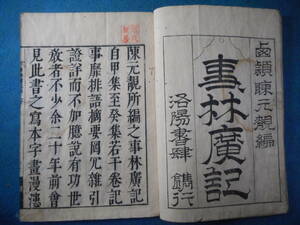 西穎陳元靚編
事林廣記
洛陽書肆 鐫行
陳元靚所編之事林廣記
自甲集至癸集若干卷記
事靡排語摘要罔冗雜引
證詳而不加臆說有功世
教者不少余二十年前嘗
見此書之寫本字畫漫漶